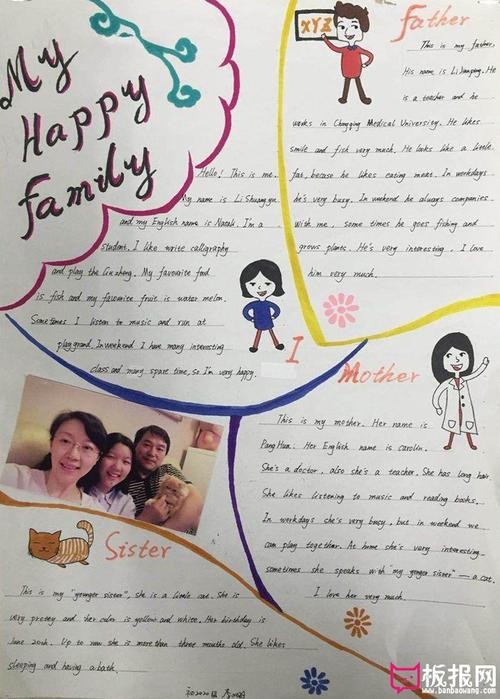 My
Happy
Family
Hello! This is me.
My name is Li Shuang yue
and my English name is Natali. I'm a
student. I like write calligraphy
and play the Gu zheng. My favourite food
is fish and my favourite fruit is water melon.
Sometimes I listen to music and run at
playgrand. In weekend I have many interesting
class and many spare time, so I'm very happy.
I
XYZ
Father
This is my father.
His name is Li Jianping. He
is a teacher and he
works in Chongqing Medical University. He likes
smile and fish very much. He looks like a little
fat, because he likes eating meat. In workdays
he's very busy. In weekend he always companies
with me, some times he goes fishing and
grows plants. He's very interesting. I love
him very much.
Mother
This is my mother. Her name is
Pang Hua. Her English name is carolin.
She's a doctor, also she's a teacher. She has long hair
She likes listening to music and reading books.
In workdays she's very busy, but in weekend we
can play together. At home she's very interesting.
sometimes she speaks with "my yonger sister" — a cat.
I love her very much.
Sister
This is my "younger sister", she is a little cat. She is
very pretty and her color is yellow and white. Her birthday is
June 20th. Up to now she is more than three months old. She likes
sleeping and having a bath.
初2020级
板报网
www.banbaowang.com